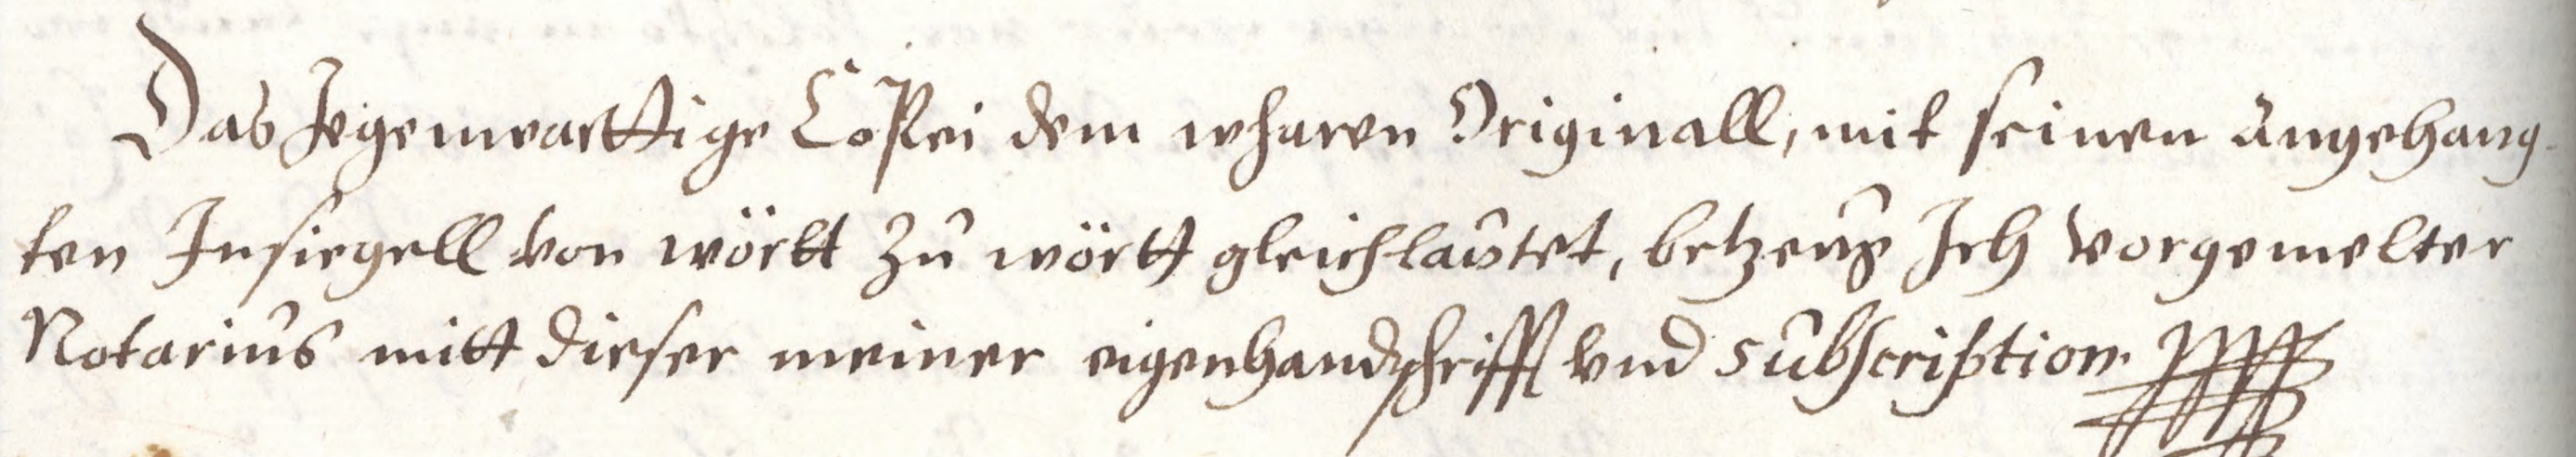 Das Jegenwarttige Copei dem wharen Originall, mit seinen angehang-
ten Insiegell von wörtt zu wörtt gleichlautet, betzeug Ich vorgemelter
Notarius mitt dieser meiner eigenhandschrifft vnd subscription.